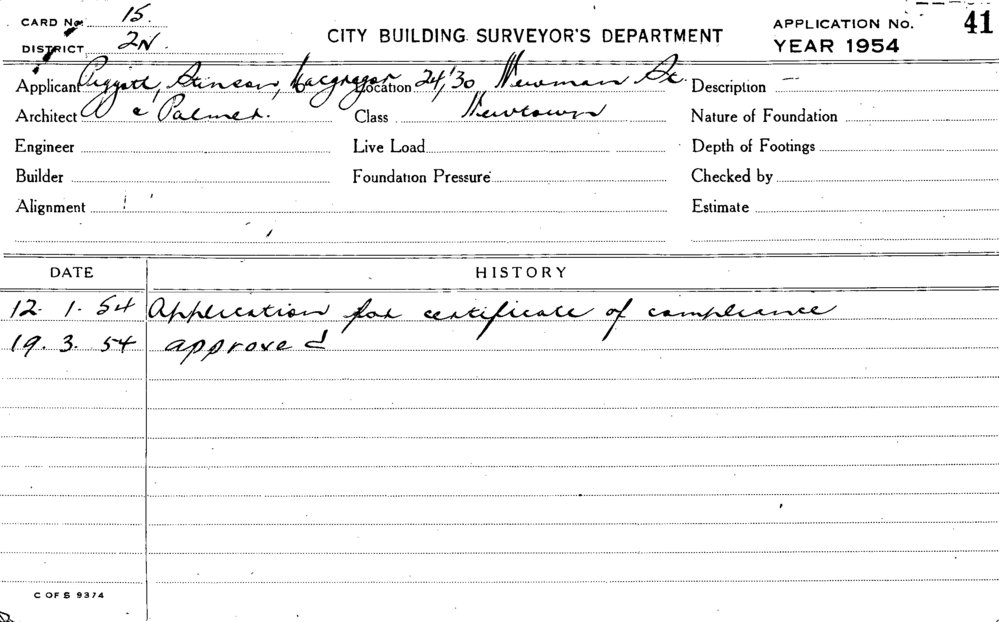 CARD No. 15.
DISTRICT 2N.
CITY BUILDING SURVEYOR'S DEPARTMENT
APPLICATION No. 41
YEAR 1954
Applicant Piggott, Stinson, Macgregor
Location 24/30 Newman St
Description —
Architect & Palmer.
Class Newtown
Nature of Foundation
Engineer
Live Load
Depth of Footings
Builder
Foundation Pressure
Checked by
Alignment
Estimate
DATE HISTORY
12. 1. 54 Application for certificate of compliance
19. 3. 54 approved
C OF S 9374